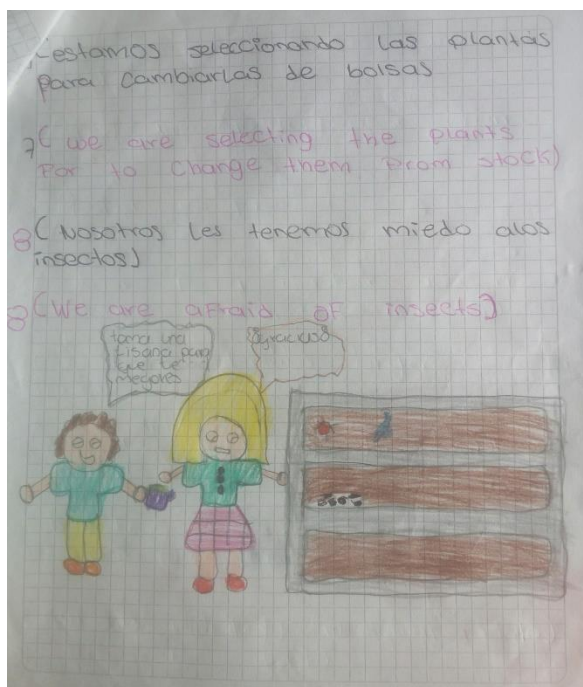 (estamos seleccionando las plantas
para cambiarlas de bolsas
7( we are selecting the plants
For to change them From stock)
8( Nosotros les tenemos miedo alos
insectos)
8(We are afraid of insects)
toma una
tisana para
que te
megores
gracias